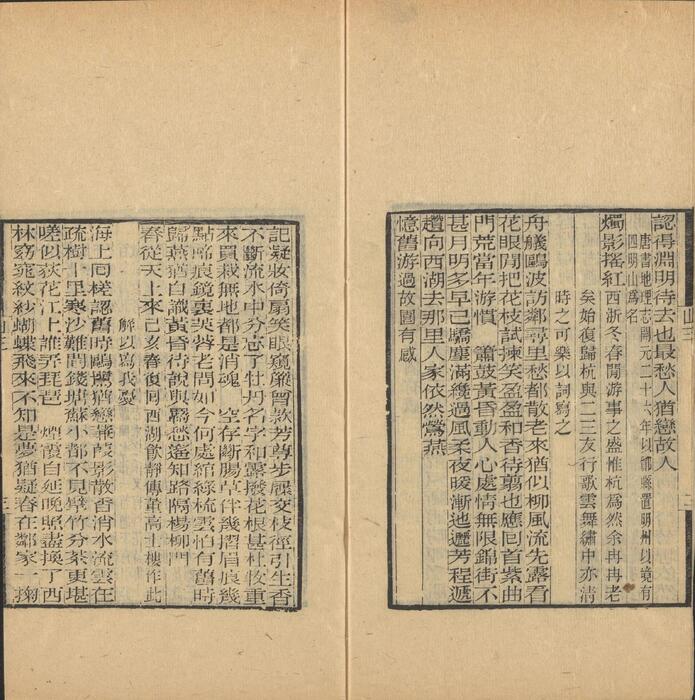 認得淵明待去也最愁人猶戀故人
唐書地理志開元二十六年以鄮縣置明州以境有
四明山爲名
燭影搖紅 西浙冬春間遊事之盛惟杭爲然余冉冉老
矣始復歸杭與二三友行歌雲舞繡中亦清
時之可樂以詞寫之
舟艤鷗波訪鄰尋里愁都散老來猶似柳風流先露看
花眼閒把花枝試揀笑盈盈和香待翦也應回首紫曲
門荒當年游慣 簫鼓黃昏動人心處情無限錦街不
甚月明多早已驕塵滿纔過風柔夜暖漸迤邐芳程遞
趲向西湖去那里人家依然鶯燕
憶舊游過故園有感
山三
三
記凝妝倚扇笑眼窺簾曾款芳尊步屧交枝徑引生香
不斷流水中分忘了牡丹名字和露撥花根甚杜牧重
來買栽無地都是消魂 空存斷腸草伴幾摺眉痕幾
點啼痕鏡裏芙蓉老問如今何處綰綠梳雲怕有舊時
歸燕猶自識黃昏待說與羇愁遙知路隔楊柳門
春從天上來 己亥春復回西湖飲靜傳董高士樓作此
解以寫我憂
海上回槎認舊時鷗鷺猶戀蒹葭影散香消水流雲在
疏樹十里寒沙難問錢塘蘇小都不見擘竹分茶更堪
嗟似荻花江上誰弄琵琶 煙霞自延晚照盡換了西
林窈窕紋紗蝴蝶飛來不知是夢猶疑春在鄰家一掬